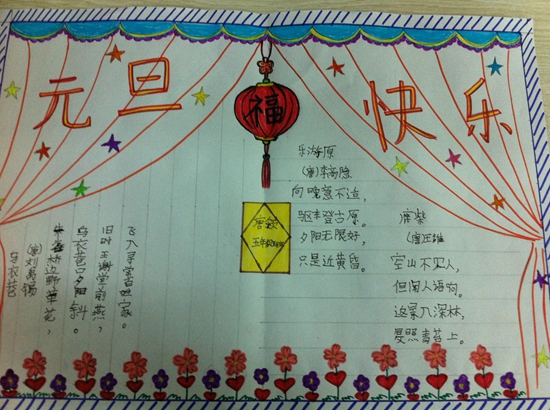 元旦快乐
福
乌衣巷
(唐)刘禹锡
朱雀桥边野草花，
乌衣巷口夕阳斜。
旧时王谢堂前燕，
飞入寻常百姓家。
乐游原
(唐)李商隐
向晚意不适，
驱车登古原。
夕阳无限好，
只是近黄昏。
五年
鹿柴
(唐)王维
空山不见人，
但闻人语响。
返景入深林，
复照青苔上。